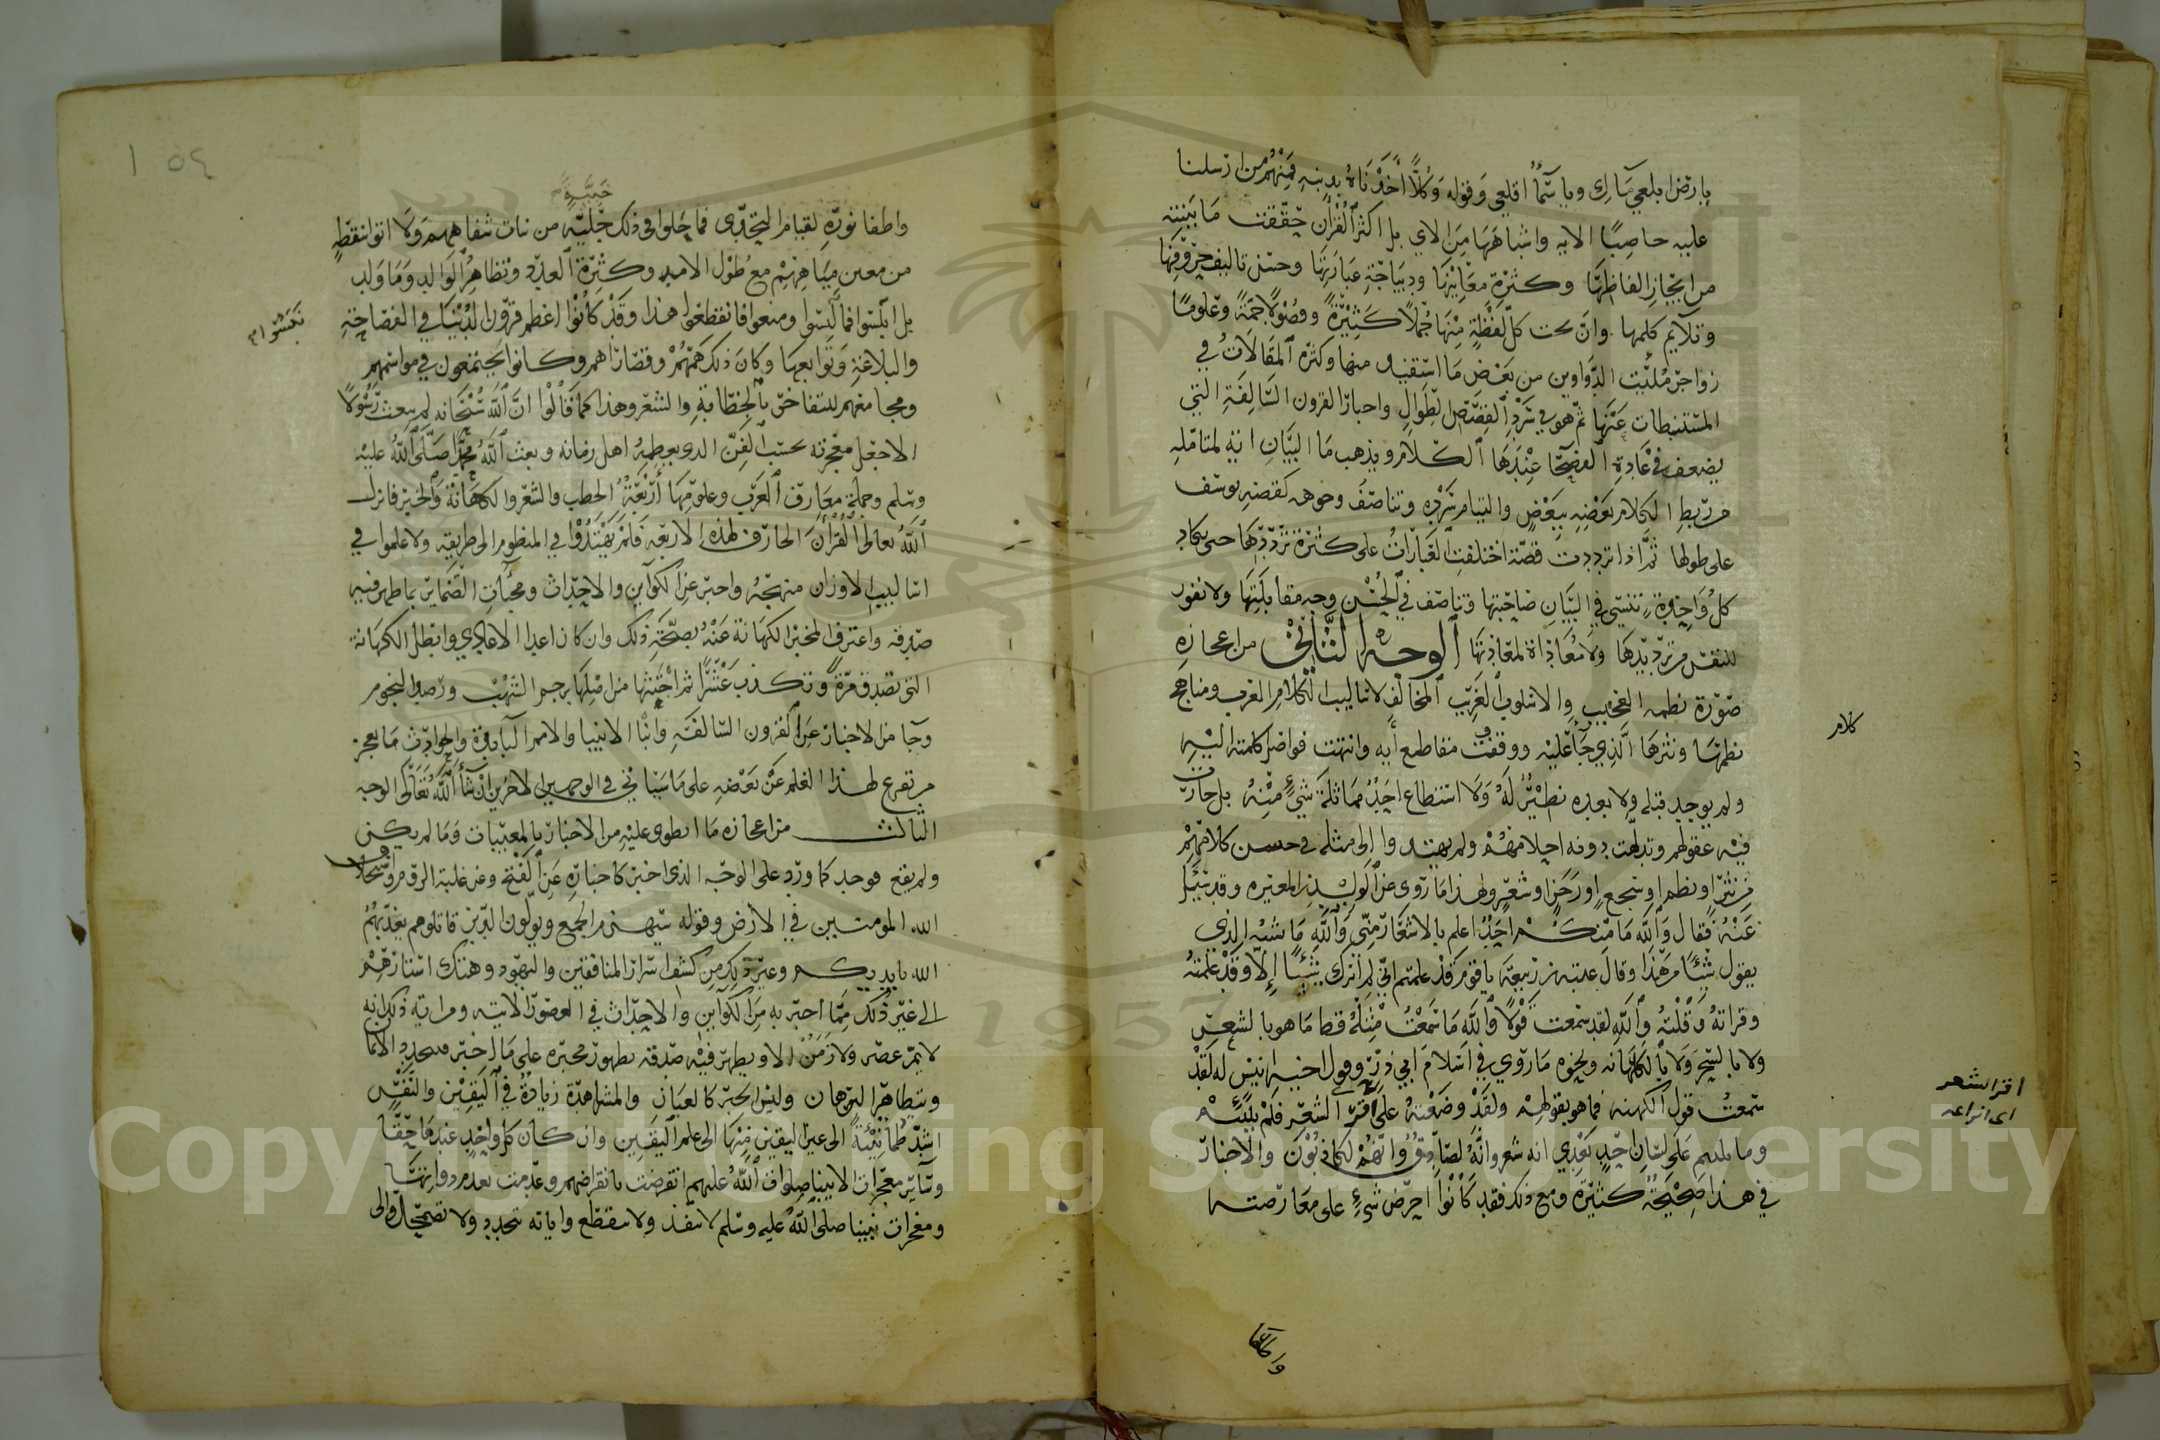 يارض ابلعي مآءك وياسمآء اقلعي وقوله وكلًّا اخذناه بذنبه فمنهم من ارسلنا
عليه حاصبًا الايه واشباهها من الاي بل اكثر القرآن حققت ما بينته
من ايجاز الفاظها وكثرة معانيها وديباجة عبارتها وحسن تاليف حروفها
وتلآيم كلمها وان تحت كل لفظة منها جملاً كثيرةً وفصولاً جمةً وعلومًا
زواجر ملئت الدواوين من بعض ما استفيد منها وكثرة المقالات في
المستنبطات عنها ثم هو في سرد القصص الطوال واخبار القرون السالفة التي
يضعف في عادة الفصحا عندها الكلام ويذهب ما البيان اية لمتامله
من ربط الكلام بعضه ببعض والتيام سرده وتناصف وجوهه كقصة يوسف
على طولها ثم اذا ترددت قصة اختلفت العبارات على كثرة ترددها حتى تكاد
كل واحدة تنسي في البيان صاحبتها وتناصف في الحسن وجه مقابلتها ولا نفور
للنفس من ترديدها ولا معاداة لمعادتها الوجه الثاني من اعجازه
صورة نظمه العجيب والاسلوب الغريب المخالف لاساليب الكلام العرب ومناهج
كلام
نظمها ونثرها الذي جآ عليه ووقفت مقاطع آيه وانتهت فواصل كلمته اليه
ولم يوجد قبله ولا بعده نظير له ولا استطاع احد مماثلة شيء منه بل حارت
فيه عقولهم وتدلهت دونه احلامهم ولم يهتدوا الى مثله في حسن كلامهم
من نثر او نظم او سجع او رجز او شعر ولهذا ما روى عن الوليد ابن المغيره وقد سئل
عنه فقال والله ما منكم احد اعلم بالاشعار منى والله ما يشبه الذي
يقول شيئًا من هذا وقال عتبه بن ربيعة ياقوم قد علمتم اني لم اترك شيئًا الا وقد علمته
وقراته وقلته والله لقد سمعت قولاً والله ما سمعت مثله قط ما هو بالشعر
ولا بالسحر ولا بالكهانه ونحوه ما روي في اسلام ابي ذر وقول اخيه انيس له لقد
اقرا الشعر
اى انواعه
سمعت قول الكهنه فما هو بقولهم ولقد وضعته على اقرا الشعر فلم يلتئم
وما يلتيم على لسان احد بعدي انه شعر وانه لصادق وانهم لكاذبون والاخبار
في هذا صحيحة كثيرة ومع ذلك فقد كانوا احرص شيء على معارضته
واطفا نوره لقيام التحدى فما جلوا فى ذلك خبيّه من نبات شفاههم ولا اتوا بنقطة
من معين مياههم مع طول الامد وكثرة العدد وتظاهر الوالد وما ولد
بل ابلسوا فما نبسوا ومنعوا فانقطعوا هذا وقد كانوا اعظم قرون الدنيا في الفصاحة
والبلاغة وتوابعها وكان ذلك همتهم وقصاراهم وكانوا يجتمعون في مواسمهم
ومجامعهم للتفاخر بالخطابة والشعر وهذا كما قالوا ان الله سبحانه لم يبعث رسولاً
الا جعل معجزته بحسب الفن الذى يعظمه اهل زمانه وبعث الله محمدا صلى الله عليه
وسلم وجملة معارف العرب وعلومها أربعة الخطب والشعر والكهانة والخبر فانزل
الله تعالى القرآن الخارق لهذه الاربعه فلم يهتدوا في المنظوم الى طريقه ولا علموا في
اساليب الاوزان منهجه واخبر عن الكوآين والاحداث ومخبآت الضماير بما ظهر فيه
صدقه واعترف المخبر الكهانة عنه بصحة ذلك وان كان اعدا الاعادي وابطل الكهانة
التي تصدق مرة وتكذب عشرًا ثم اجتثها من اصلها برجم الشهب ورصد النجوم
وجآ من الاخبار عن القرون السالفه وانبآ الانبيا والامم البآيدة والحوادث ما يعجز
من تفرغ لهذا العلم عن بعضه على ما سياتي في الوجهين الاخرين ان شآ الله تعالى الوجه
الثالث من اعجازه ما انطوى عليه من الاخبار بالمغيبات وما لم يكن
ولم يقع فوجد كما ورد على الوجه الذى اخبر كاخباره عن الفتح وعن غلبة الروم وقوله
الله المومنين في الارض وقوله سيهزم الجمع ويولون الدبر قاتلوهم يعذبهم
الله بايديكم وغير ذلك من كشف اسرار المنافقين واليهود وهتك استارهم
الى غير ذلك مما اخبر به من الكوآين والاحداث في العصور الاتيه ومراتبه ذلك انه
لا يمر عصر ولا زمن الا ويظهر فيه صدقه بظهور مخبره على ما اخبر فيتجدد الايمان
ويتظاهر البرهان وليس الخبر كالعيان والمشاهدة زيادة في اليقين والنفس
اشد طمأنينة الى عين اليقين منها الى علم اليقين وان كان كل واحد عندها حقًّا
وسآير معجزات الانبيا صلوات الله عليهم انقرضت بانقراضهم وعدمت بعدم ذواتها
ومعجزات نبينا صلى الله عليه وسلم لا تنفذ ولا تنقطع واياته تتجدد ولا تضمحل والى
١٥٤
Copyright © King Saud University
1957